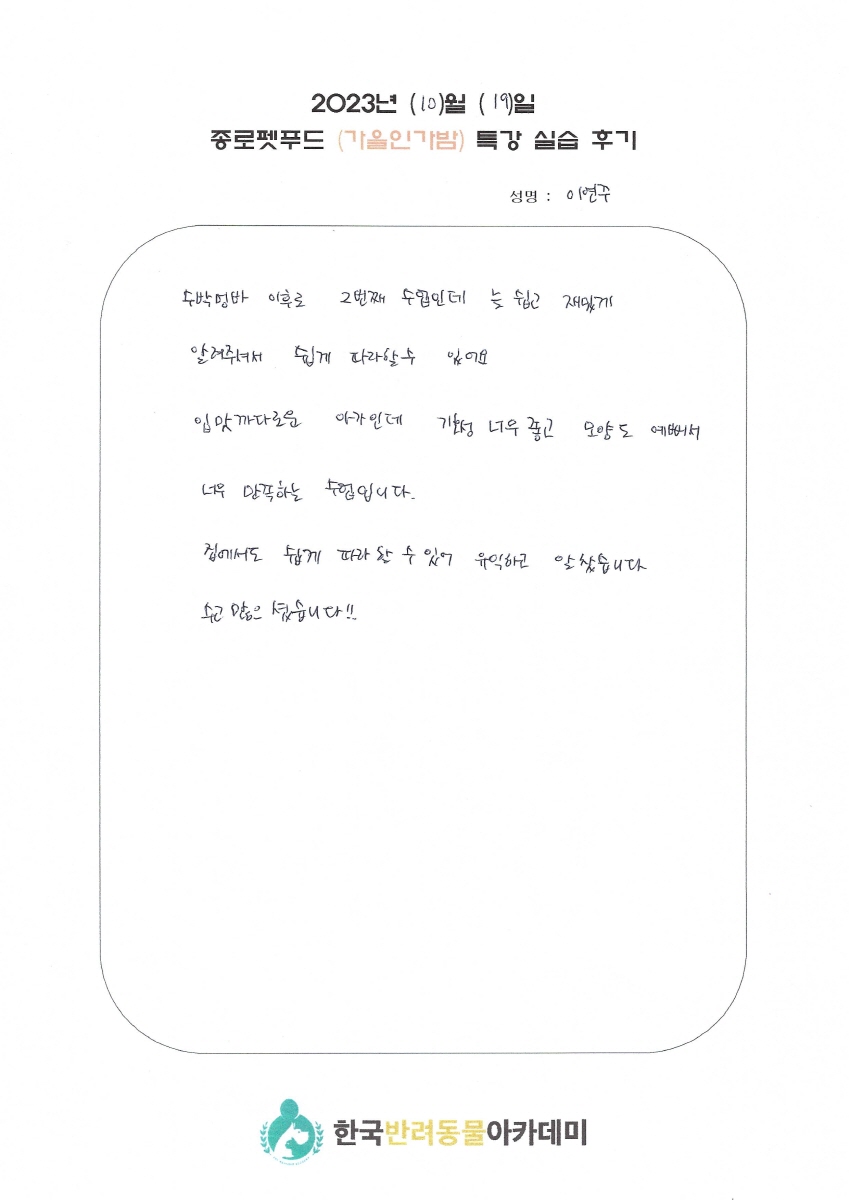 2023년 (10)월 (19)일
종로펫푸드 (가을인가밤) 특강 실습 후기
성명 : 이연주
수박멍바 이후로 2번째 수업인데 늘 쉽고 재밌게
알려주셔서 쉽게 따라할수 있어요
입맛까다로운 아가인데 기호성 너무 좋고 모양도 예뻐서
너무 만족하는 수업입니다.
집에서도 쉽게 따라할 수 있어 유익하고 알찼습니다
수고 많으셨습니다!!
한국반려동물아카데미